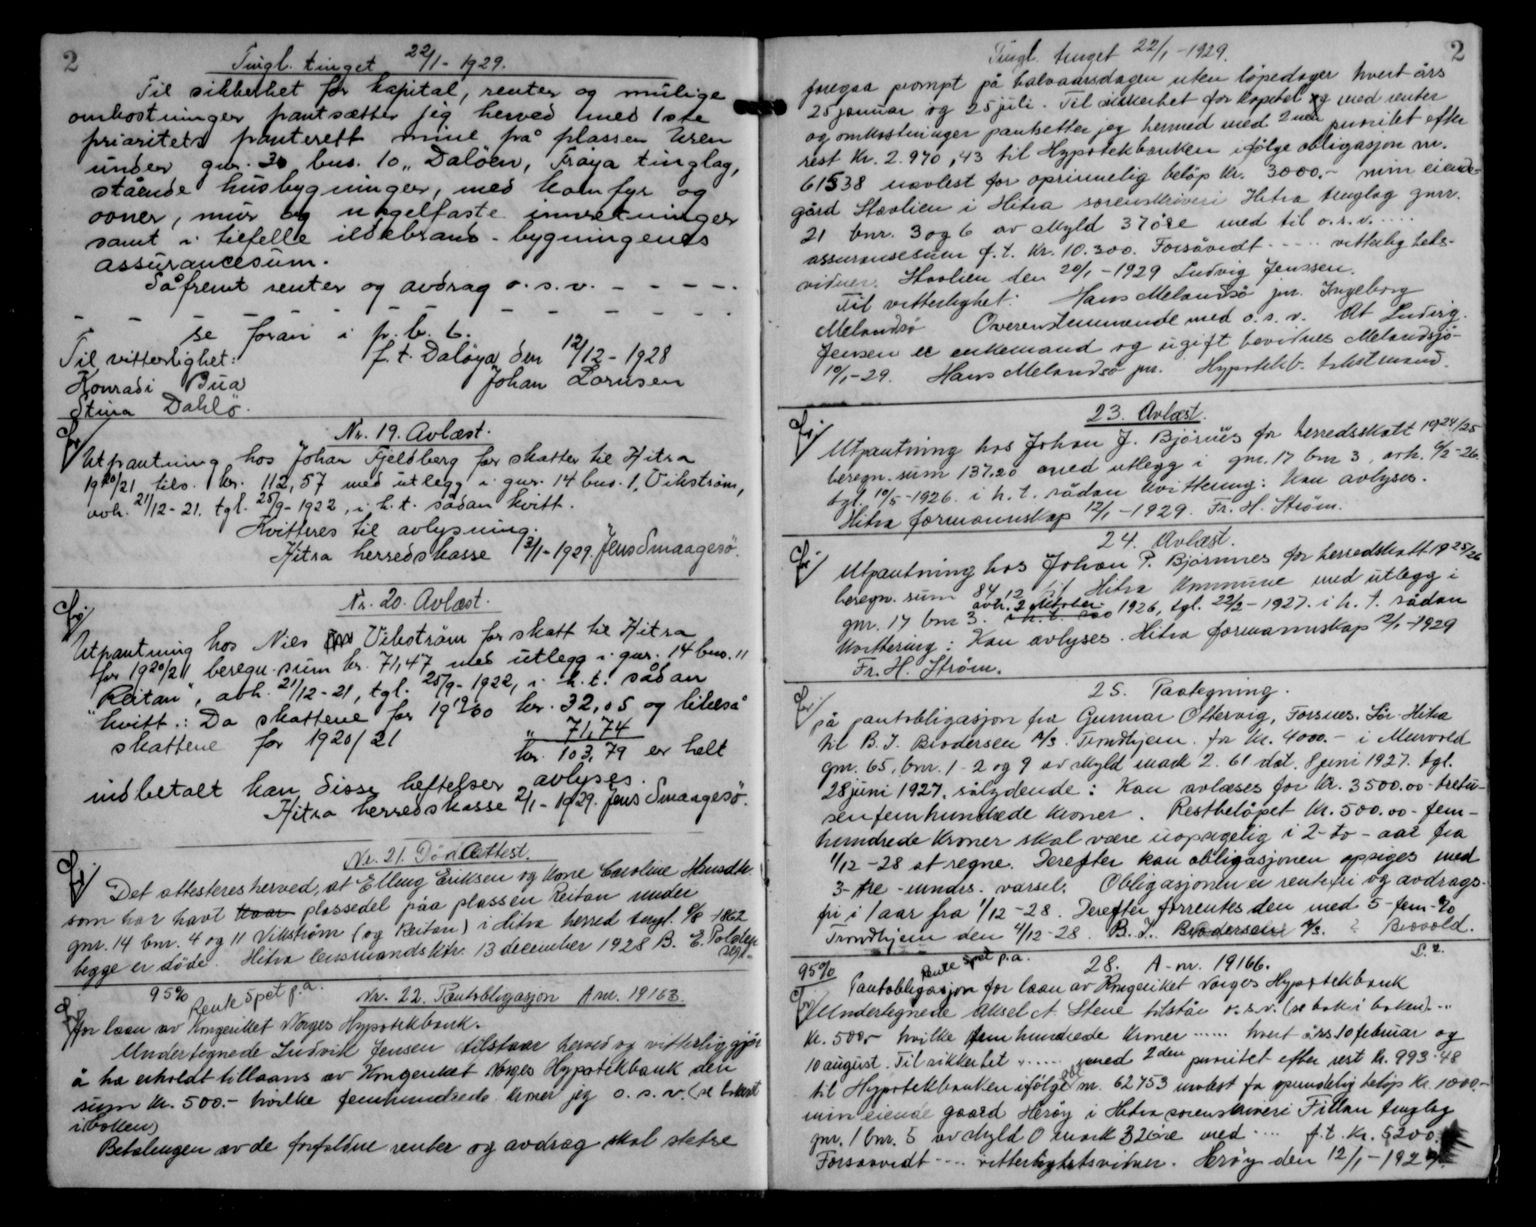 2
Tingl. tinget 22/1-1929.
Til sikkerhet for kapital, renter og mulige
omkostninger pantsætter jeg herved med 1ste
prioritets panterett mine på plassen Uren
under gnr. 30 bns. 10 „Daløen, Frøya tinglag,
stående husbygninger, med komfyr og
ovner, mur og nagelfaste innretninger
samt i tilfelle ildsbrand - bygningenes
assurancesum.
Såfremt renter og avdrag o. s. v. - - - - -
- - - - - - - - - - - - -
se foran i p. b. b.
Til vitterlighet: f. t. Daløya den 12/12-1928
Konrad Bua Johan Lornsen
Stina Dahlø.
Nr. 19. Avlæst.
Utpantning hos Johan Fjeldberg for skatter til Hitra
1920/21 tils. kr. 112,57 med utlegg i gnr. 14 bns. 1, Vikstrøm,
avh. 21/12-21. tgl. 25/9-1922, i h. t. sådan kvitt.
Kvitteres til avlysning.
Hitra herredskasse 13/1-1929. Jens Smaagesø.
Nr. 20. Avlæst.
Utpantning hos Nies Vikstrøm for skatt til Hitra
for 1920/21 beregn. sum kr. 71,47 med utlegg i gnr. 14 bns. 11
„Reitan", avh. 21/12-21, tgl. 25/9-1922, i h. t. sådan
kvitt.: Da skattene for 1919/20 kr. 32,05 og likeså
skattene for 1920/21 „ 71,74
kr. 103,79 er helt
indbetalt kan disse heftelser avlyses.
Hitra herredskasse 2/1-1929. Jens Smaagesø.
Nr. 21. Dødsattest.
Det attesteres herved, at Elling Eriksen og kone Caroline Hansdtr.
som har havt plassedel paa plassen Reitan under
gnr. 14 bnr. 4 og 11 Vikstrøm (og Reitan) i Hitra herred tingl. 6/8-1862
begge er døde. Hitra lensmandsktr. 13 december 1928 B. E.
95% Rente 5pct p.a. Nr. 22. Pantobligasjon A nr. 19163.
for laan av Kongeriket Norges Hypotekbank.
Undertegnede Ludvik Jensen tilstaar herved og vitterliggjør
å ha erholdt tillaans av Kongeriket Norges Hypotekbank den
sum kr. 500.- hvilke femhundrede kroner jeg o. s. v. (se bakerst
i boken)
Betalingen av de forfaldne renter og avdrag skal stetse
Tingl. tinget 22/1-1929. 2
foregaa prompt på halvaarsdagen uten löpedager hvert års
25 januar og 25 juli. Til sikkerhet for kapital og med renter
og omkostninger pantsetter jeg hermed med 2nen prioritet efter
rest Kr. 2.970,43 til Hypotekbanken ifølge obligasjon nr.
61538 utlest for oprinnelig beløp Kr. 3000.- min eiende
gård Stavlien i Hitra sorenskriveri Hitra tinglag gnr.
21 bnr. 3 og 6 av skyld 37 öre med til o.s.v. ....
assuransesum f. t. Kr. 10.300. Forsåvidt ..... vitterlighets-
vitner. Stavlien den 20/1-1929 Ludvig Jenssen.
Til vitterlighet: Hans Melandsö jnr. Ingeborg
Melandsö Overenstemmende med o. s. v. At Ludvig
Jensen er enkemand og ugift bevidnes Melandsjö
10/1-29. Hans Melandsö jnr. Hypotekb. takstmand.
23. Avlæst.
Utpantning hos Johan J. Bjørnes for herredsskatt 1924/25
beregn. sum 137.20 med utlegg i gnr. 17 bnr 3, avh. 6/2-26.
tgl. 10/5-1926. i h. t. sådan kvittering: Kan avlyses.
Hitra formannskap 12/1-1929. Fr. H. Strøm.
24. Avlæst.
Utpantning hos Johan P. Bjørnnes for herredskatt 1925/26
beregn. sum 84,12 til Hitra kommune med utlegg i
gnr. 17 bnr 3. avh. 2 oktober 1926, tgl. 22/2-1927. i h. t. sådan
kvittering: Kan avlyses. Hitra formannskap 2/1-1929
Fr. H. Strøm.
25. Paategning.
på pantobligasjon fra Gunnar Ottervig, Forsnes. Sör-Hitra
til B. I. Brodersen A/S. Trondhjem. for Kr. 4000.- i Murvold
gnr. 65, bnr. 1-2 og 9 av skyld mark 2.61 dat. 8 juni 1927. tgl.
28 juni 1927. sålydende: Kan avlæses for Kr. 3500.00 tretu-
senfemhundrede kroner. Restbelöpet Kr. 500.00 - fem-
hundrede kroner skal være uopsigelig i 2-to - aar fra
1/12-28 at regne. Derefter kan obligasjonen opsiges med
3-tre - mndrs. varsel. Obligasjonen er rentefri og avdrags-
fri i 1 aar fra 1/12-28. Derefter forrentes den med 5-fem-%
Trondhjem den 4/12-28. B. I. Brodersen A/S.
95% Rente 5pct p.a. 28. A-nr. 19166.
Pantobligasjon for laan av Kongeriket Norges Hypotekbank
Undertegnede Aksel A. Stene tilstår o.s.v. (se bak i boken)...
Kr. 500.- hvilke femhundrede kroner ...... hvert års 10 februar og
10 august. Til sikkerhet ...... med 2den prioritet efter rest kr. 993.48
til Hypotekbanken ifølge obl nr. 62753 utlest for oprindelig beløp Kr. 1000.-
min eiende gaard Herøy i Hitra sorenskriveri Fillan tinglag
gnr. 1 bnr. 5 av skyld 0 mark 32 öre med .... f.t. Kr. 5200.
Forsaavidt .... vitterlighetsvitner. Herøy den 12/1-1929.